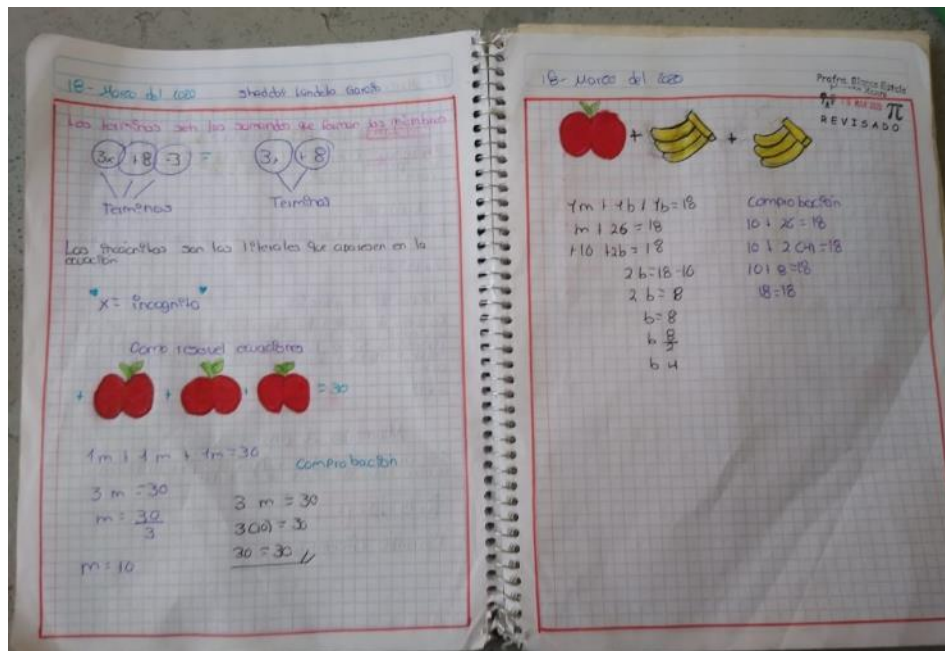 18- Marzo del 2020
Los terminos son los sumando que forman los miembros
3x +8 -3 =
3x + 8
Terminos
Terminos
Las incognitas son las literales que aparesen en la
ecuación
x= incognita
Como resuel ecuaciones
+ + + = 30
1m + 1m + 1m=30
3 m =30
m = 30
3
m = 10
comprobación
3 m = 30
3(10) = 30
30 = 30
18- Marzo del 2020
Profra. Blanca Estela
REVISADO
π
+ +
1m + 1b + 1b=18
m + 2b = 18
+10 +2b = 18
2 b=18-10
2 b= 8
b= 8
b 8
2
b 4
comprobación
10 + 2b =18
10 + 2 (4)=18
10+ 8 =18
18=18